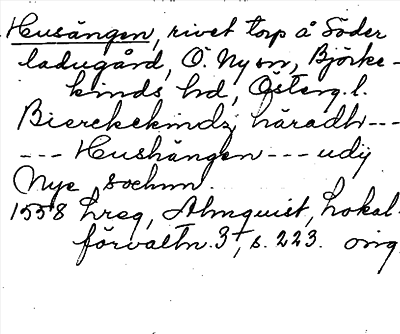 Husängen, rivet torp å Söder
ladugård, Ö. Ny sn, Björke-
kinds hd, Österg.l.
Bierekekindz häradh ---
--- Hushängen --- udij
Nye sochnn.
1558 hreg, Almquist, Lokal-
förvaltn. 3, s. 223. orig.